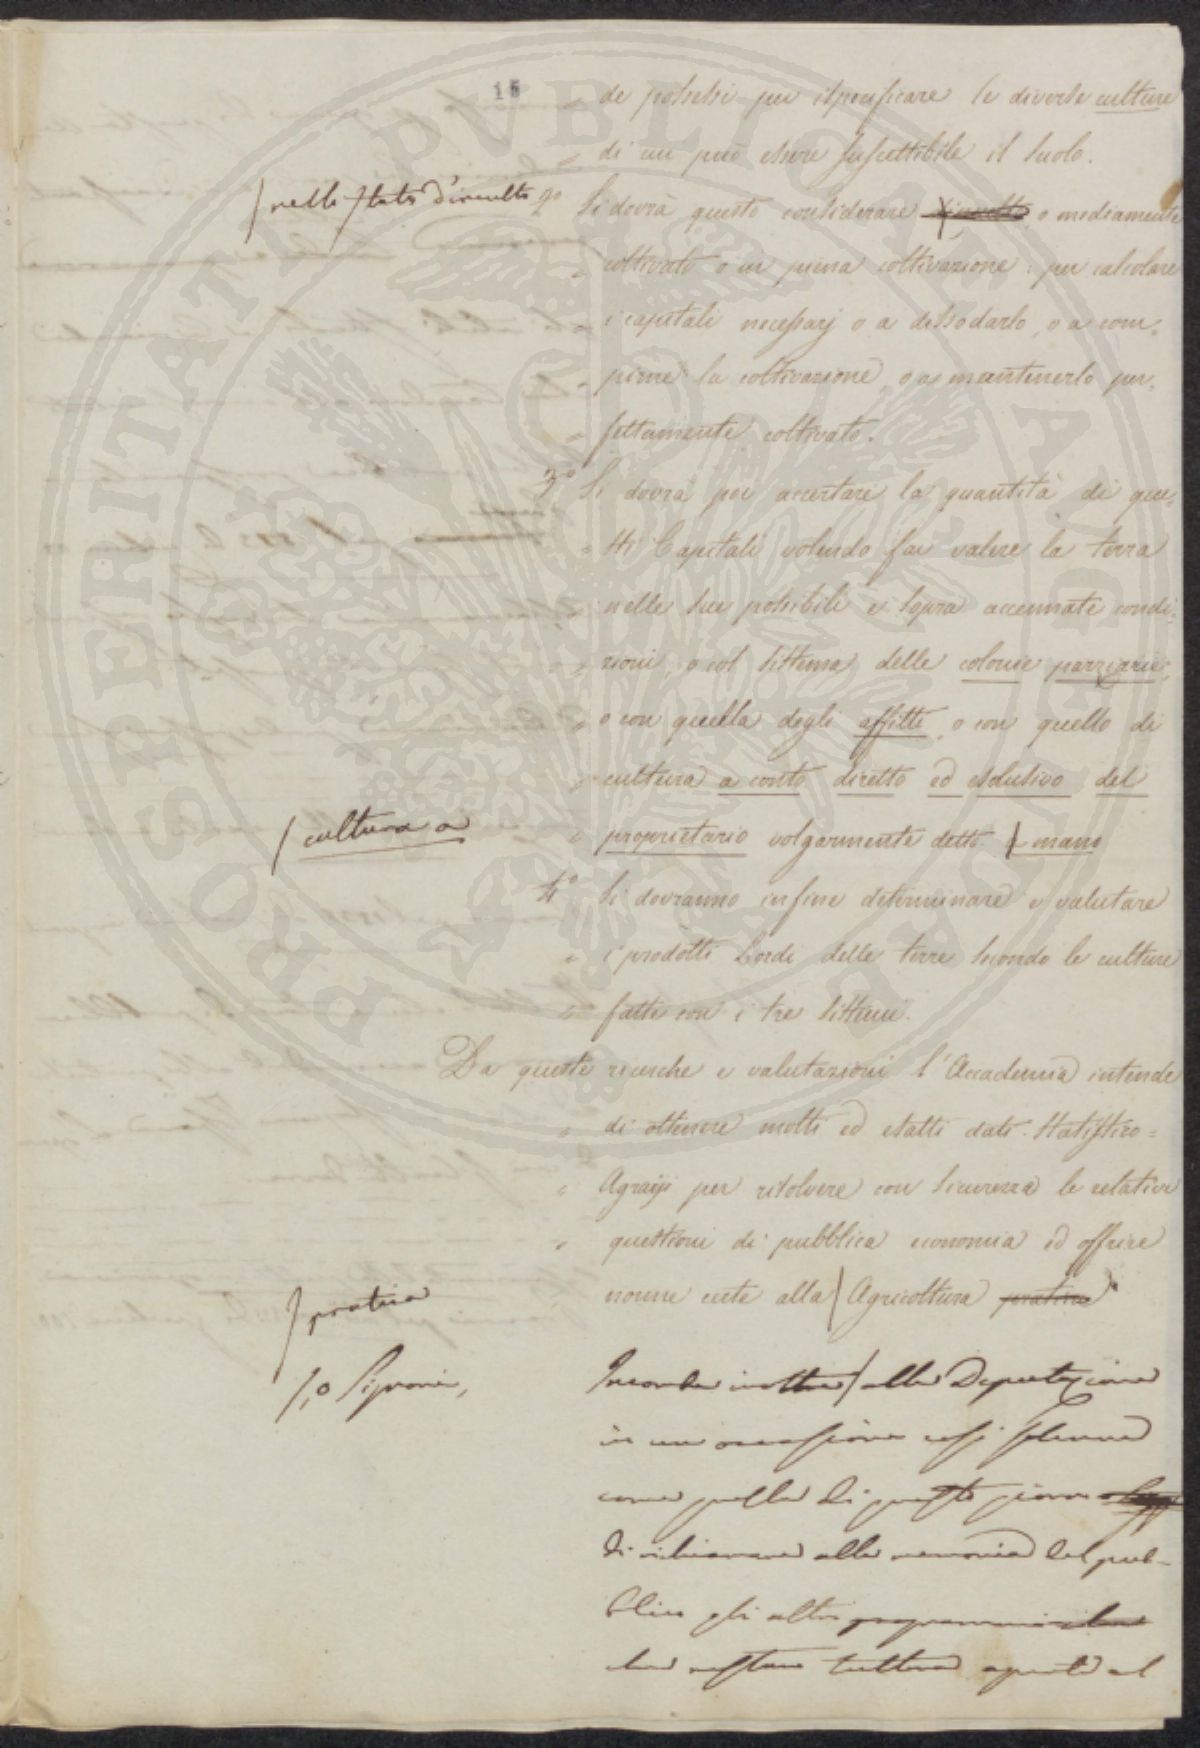 15
„ de possessi per ispecificare le diverse culture
„ di cui può essere suscettibile il suolo.
/ nello stato d'incolto
2º Si dovrà questo considerare incolto o mediamente
„ coltivato o in piena coltivazione: per calcolare
„ i capitali necessarj o a dissodarlo, o a com„
„ pierne la coltivazione, o a mantenerlo per„
„ fettamente coltivato.
3º Si dovrà poi accertare la quantità di que„
„ sti Capitali volendo far valere la terra
„ nelle sue possibili e sopra accennate condi„
„ zioni, o col sistema delle colonie parziarie,
„ o con quella degli affitti, o con quello di
„ cultura a conto diretto ed esclusivo del
/ cultura a
„ proprietario volgarmente detto / mano
4º Si dovranno infine determinare e valutare
„ i prodotti Lordi delle terre secondo le culture
„ fatte con i tre sistemi.
Da queste ricerche e valutazioni l'Accademia intende
„ di ottenere molti ed esatti dati Statistico=
„ Agrarj per risolvere con sicurezza le relative
„ questioni di pubblica economia ed offrire
/ pratica
norme certe alla / Agricoltura pratica
/, o Signori,
Incombe inoltre / alla Deputazione
in un occasione così solenne
come quella di questo giorno
di richiamare alla memoria del pub-
blico gli altri programmi
che restano tuttora aperti al
PROSPERITATI PVBLICAE AVGENDAE